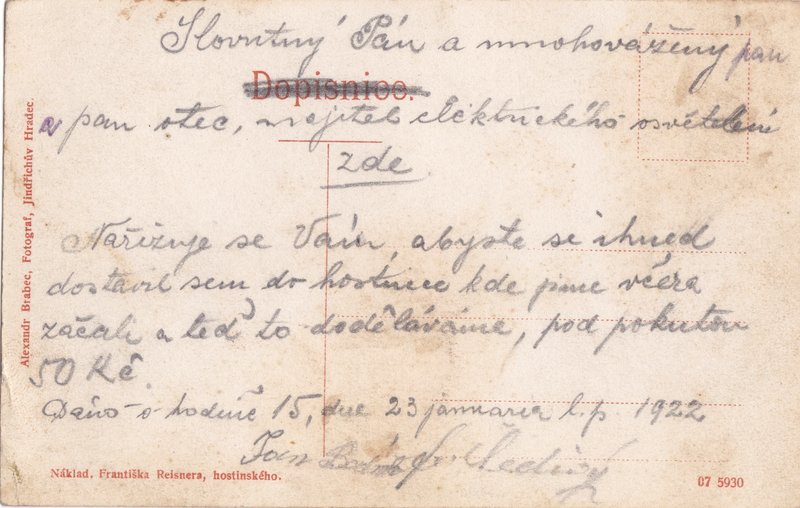 Slovutný Pán a mnohovážený pan
Dopisnice.
a pan otec, majitel elektrického osvětlení
zde
Nařizuje se Vám, abyste se ihned
dostavil sem do hostince kde jsme včera
začali a teď to doděláváme, pod pokutou
50 Kč.
Dáno o hodině 15, dne 23 januaria l.p. 1922
Jan
Alexandr Brabec, Fotograf, Jindřichův Hradec
Náklad. Františka Reisnera, hostinského.
07 5930